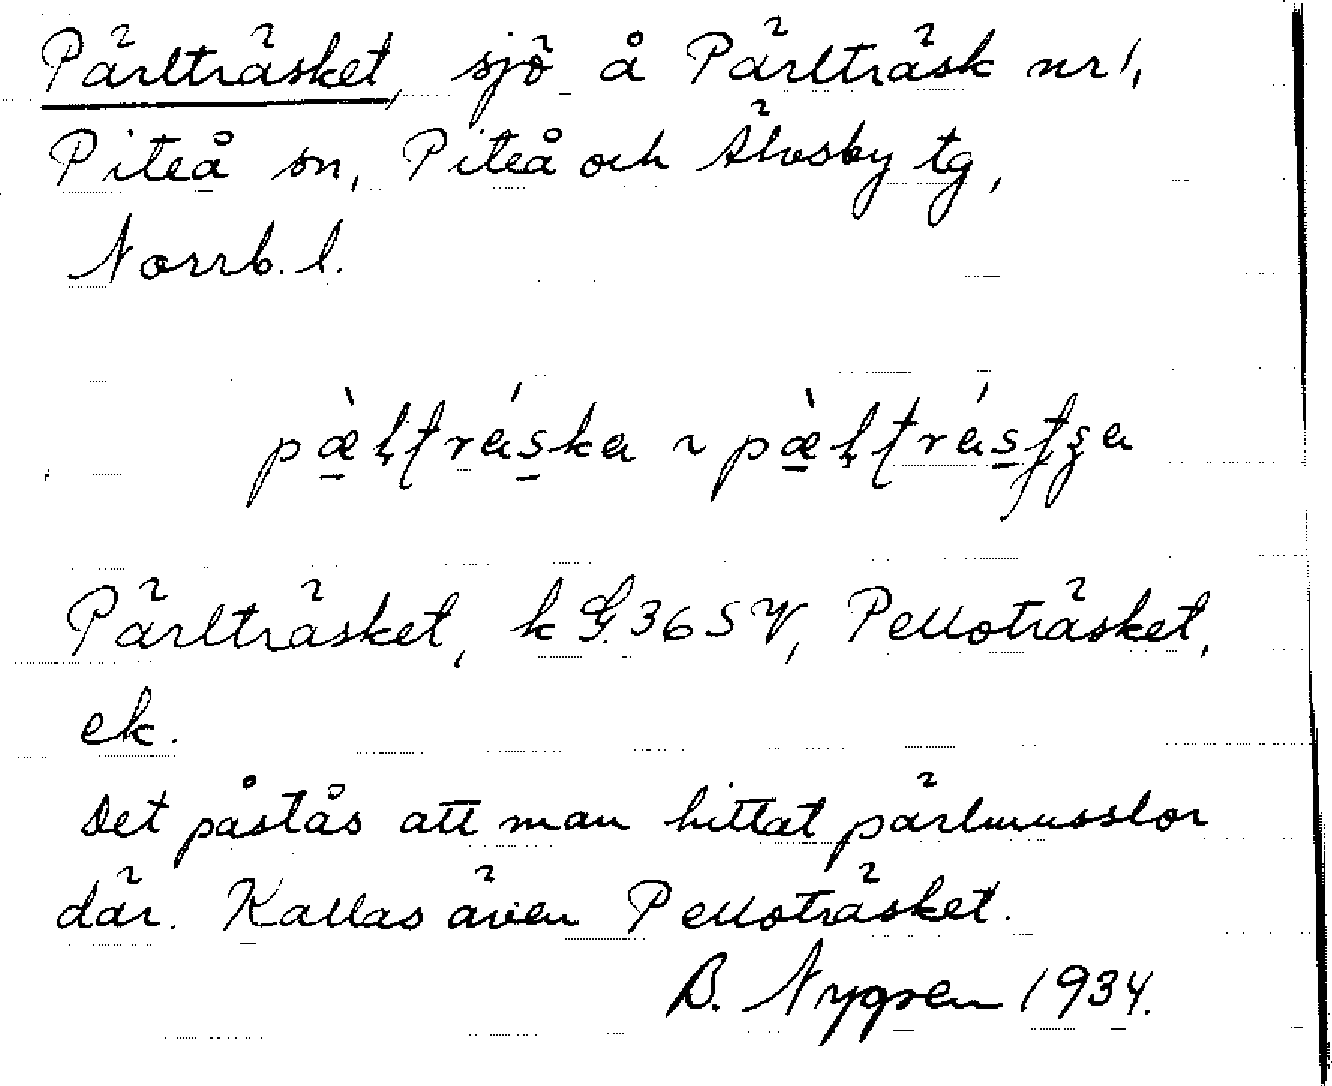 Pärlträsket, sjö å Pärlträsk nr 1,
Piteå sn, Piteå och Älvsby tg,
Norrb. l.
Pärlträsket, k G. 365 V, Pelloträsket,
ek.
Det påstås att man hittat pärlmusslor
där. Kallas även Pelloträsket.
B. Nygren 1934.